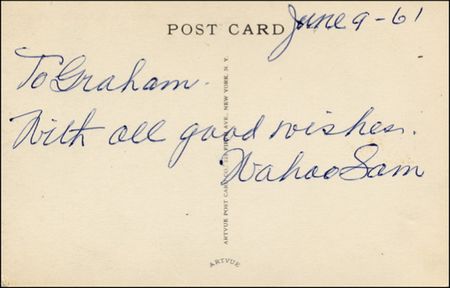 POST CARD
June 9-61
To Graham.
With all good wishes.
Wahoo Sam
ARTVUE POST CARD CO., 225 FIFTH AVE., NEW YORK, N. Y.
ARTVUE